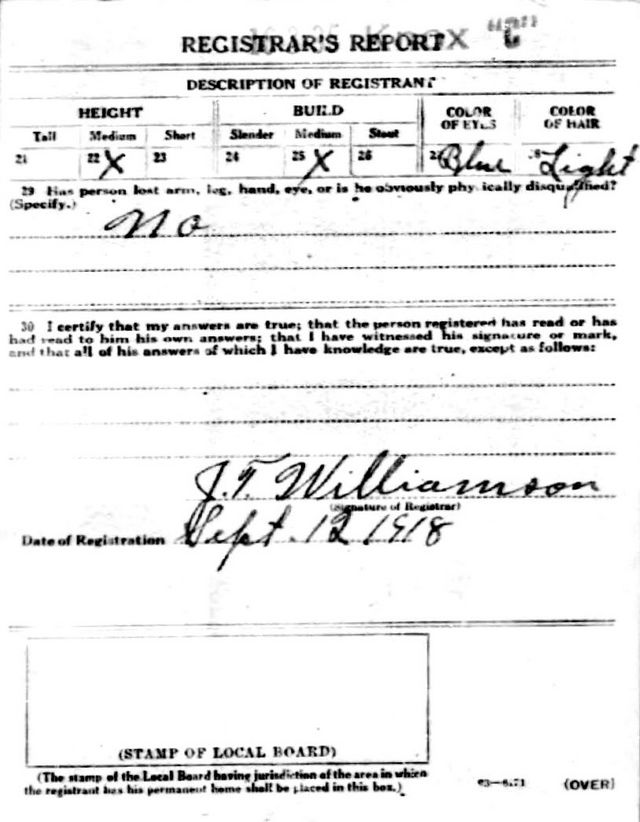 Knox
REGISTRAR'S REPORT
DESCRIPTION OF REGISTRANT
HEIGHT BUILD COLOR OF EYES COLOR OF HAIR
Tall Medium Short Slender Medium Stout
21 22 X 23 24 25 X 26 Blue Light
29 Has person lost arm, leg, hand, eye, or is he obviously physically disqualified?
(Specify.)
No
30 I certify that my answers are true; that the person registered has read or has
had read to him his own answers; that I have witnessed his signature or mark,
and that all of his answers of which I have knowledge are true, except as follows:
J.T. Williamson
(Signature of Registrar)
Date of Registration Sept. 12 1918
(STAMP OF LOCAL BOARD)
(The stamp of the Local Board having jurisdiction of the area in which
the registrant has his permanent home shall be placed in this box.)
03—6.71 (OVER)